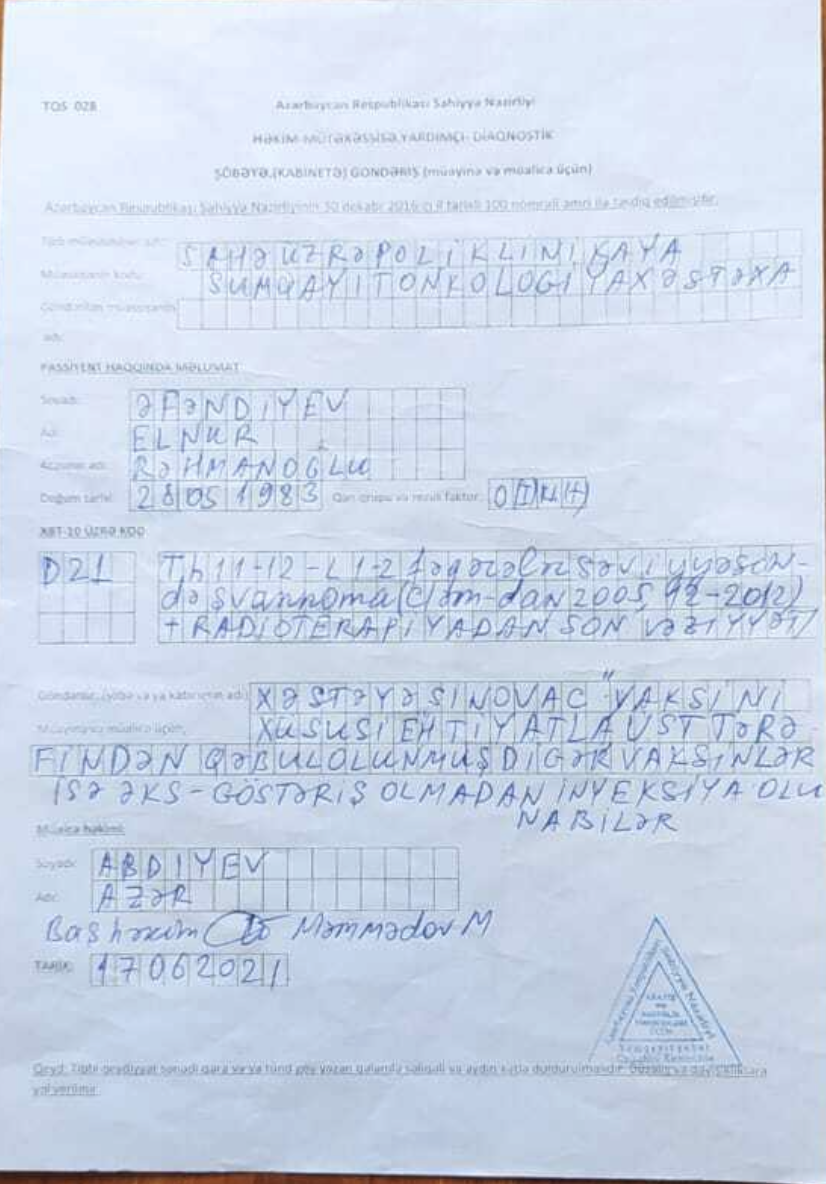 TQS 028
Azərbaycan Respublikası Səhiyyə Nazirliyi
HƏKİM-MÜTƏXƏSSİSƏ, YARDIMÇI- DİAQNOSTİK
ŞÖBƏYƏ,(KABİNETƏ) GÖNDƏRİŞ (müayinə və müalicə üçün)
Azərbaycan Respublikası Səhiyyə Nazirliyinin 30 dekabr 2016-cı il tarixli 100 nömrəli əmri ilə təsdiq edilmişdir.
SAHƏ ÜZRƏ POLİKLİNİKAYA
Müəssisənin kodu:
SUMQAYIT ONKOLOGIYA XƏSTƏXA
adı:
PASSİYENT HAQQINDA MƏLUMAT
Soyadı: ƏFƏNDIYEV
Adı: ELNUR
Atasının adı: RƏHMAN OGLU
Doğum tarixi: 28 05 1983 Qan qrupu və rezus faktor: O(I)Rh(+)
XBT-10 ÜZRƏ KOD
D21 Th 11-12-L1-2 fəqərələri səviyyəsin-
də şvannoma (C/əm-dən 2005, 92-2012)
+ RADİOTERAPİYADAN SON VƏZİYYƏT/
XƏSTƏYƏ SINOVAC" VAKSİNİ
Müayinə və müalicə üçün:
XÜSUSİ EHTİYATLA ÜST TƏRƏ
FİNDƏN QƏBUL OLUNMUŞ DİGƏR VAKSİNLƏR
İSƏ ƏKS-GÖSTƏRİŞ OLMADAN İNYEKSİYA OLU
NABİLƏR
Müalicə həkimi:
Soyadı: ABDIYEV
Adı: AZƏR
Baş həkim Məmmədov M
TARİX: 17 06 2021
Azərbaycan Respublikası Səhiyyə Nazirliyi
Qeyd: Tibbi qeydiyyat sənədi qara və ya tünd göy yazan qələmlə səliqəli və aydın xətlə doldurulmalıdır. Düzəliş və dəyişikliklərə
yol verilmir.